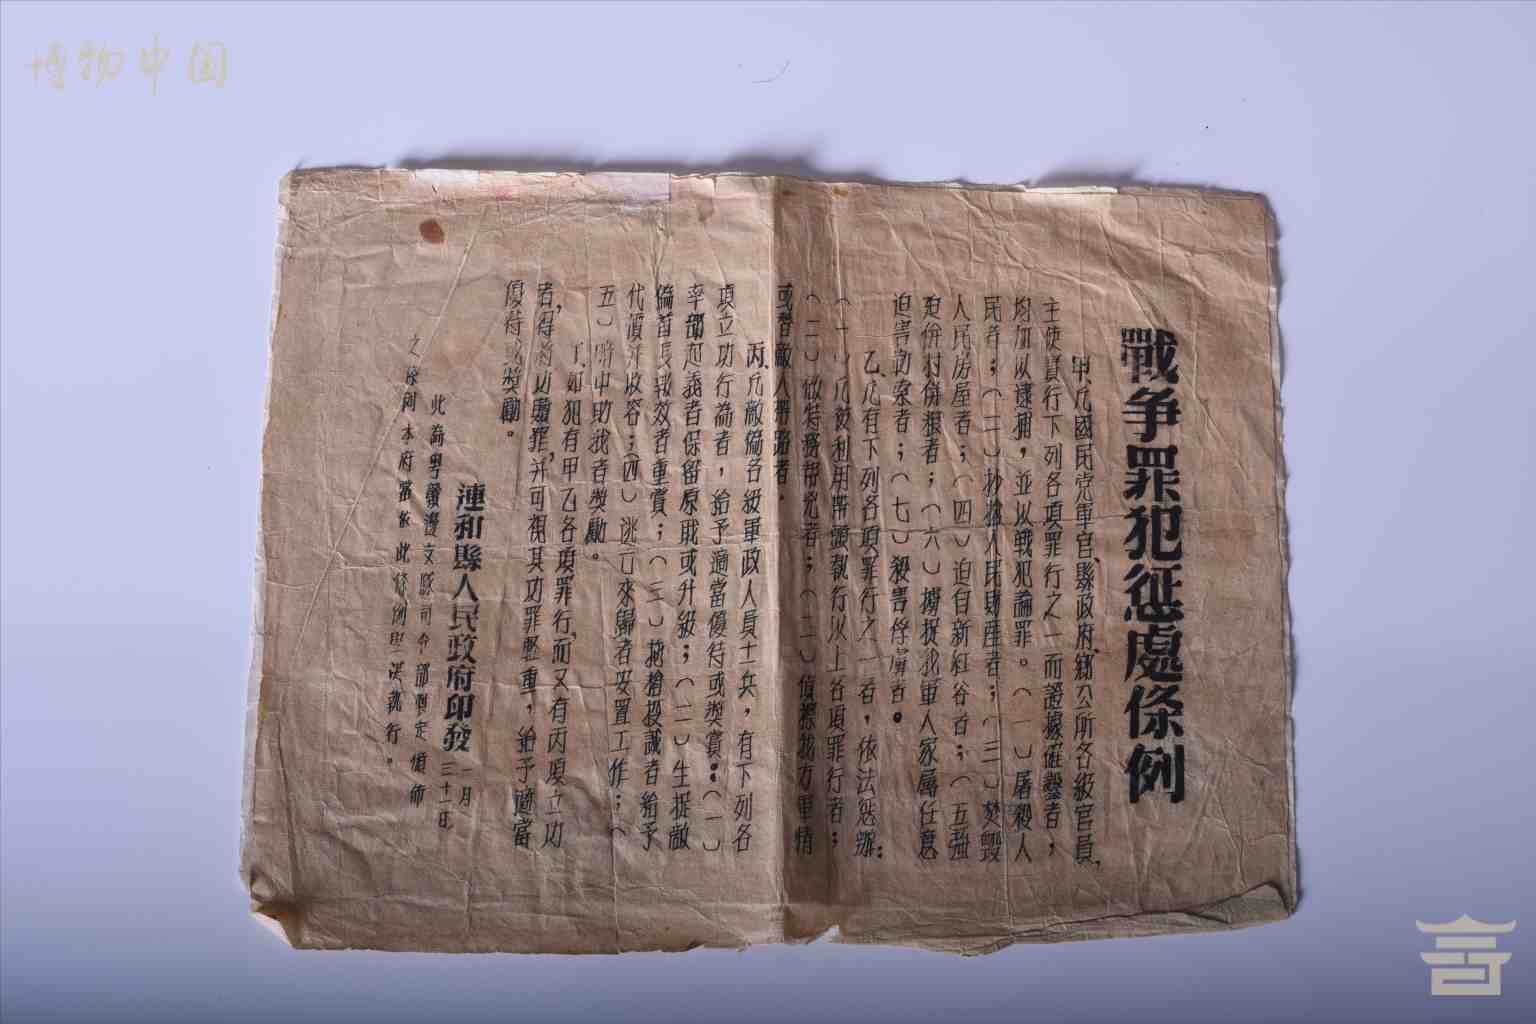 博物中国
戰争罪犯惩處條例
甲、凡國民党軍官、縣政府、鄉公所各級官員，
主使實行下列各項罪行之一而證據確鑿者；
均加以逮捕，並以戰犯論罪。（一）屠殺人
民者；（二）抄掠人民財産者；（三）焚毀
人民房屋者；（四）迫自新紅谷者；（五）强
廹併村併艰者；（六）擄捉我軍人家屬任意
迫害勒索者；（七）殺害俘虜者。
乙、凡有下列各項罪行之一者，依法惩辦：
（一）凡被利用帶頭執行以上各項罪行者；
（二）做特務帮兇者；（三）偵察我方軍情
或替敵人帶路者．
丙、凡敵僞各級軍政人員士兵，有下列各
項立功行為者，給予適當優待或奬賞：（一）
率部起義者保留原职或升級；（二）生捉敵
僞首長報效者重賞；（三）拖槍投誠者給予
代價并收容；（四）逃亡來歸者安置工作；（
五）暗中助我者奬勵。
丁、如犯有甲乙各項罪行，而又有丙項立功
者，得将功贖罪，并可視其功罪輕重，給予適當
優待或奬勵。
連和縣人民政府印發 一月三十一日
此為粤贛邊支隊司令部製定頒佈
之條例本府當依此條例學習執行。